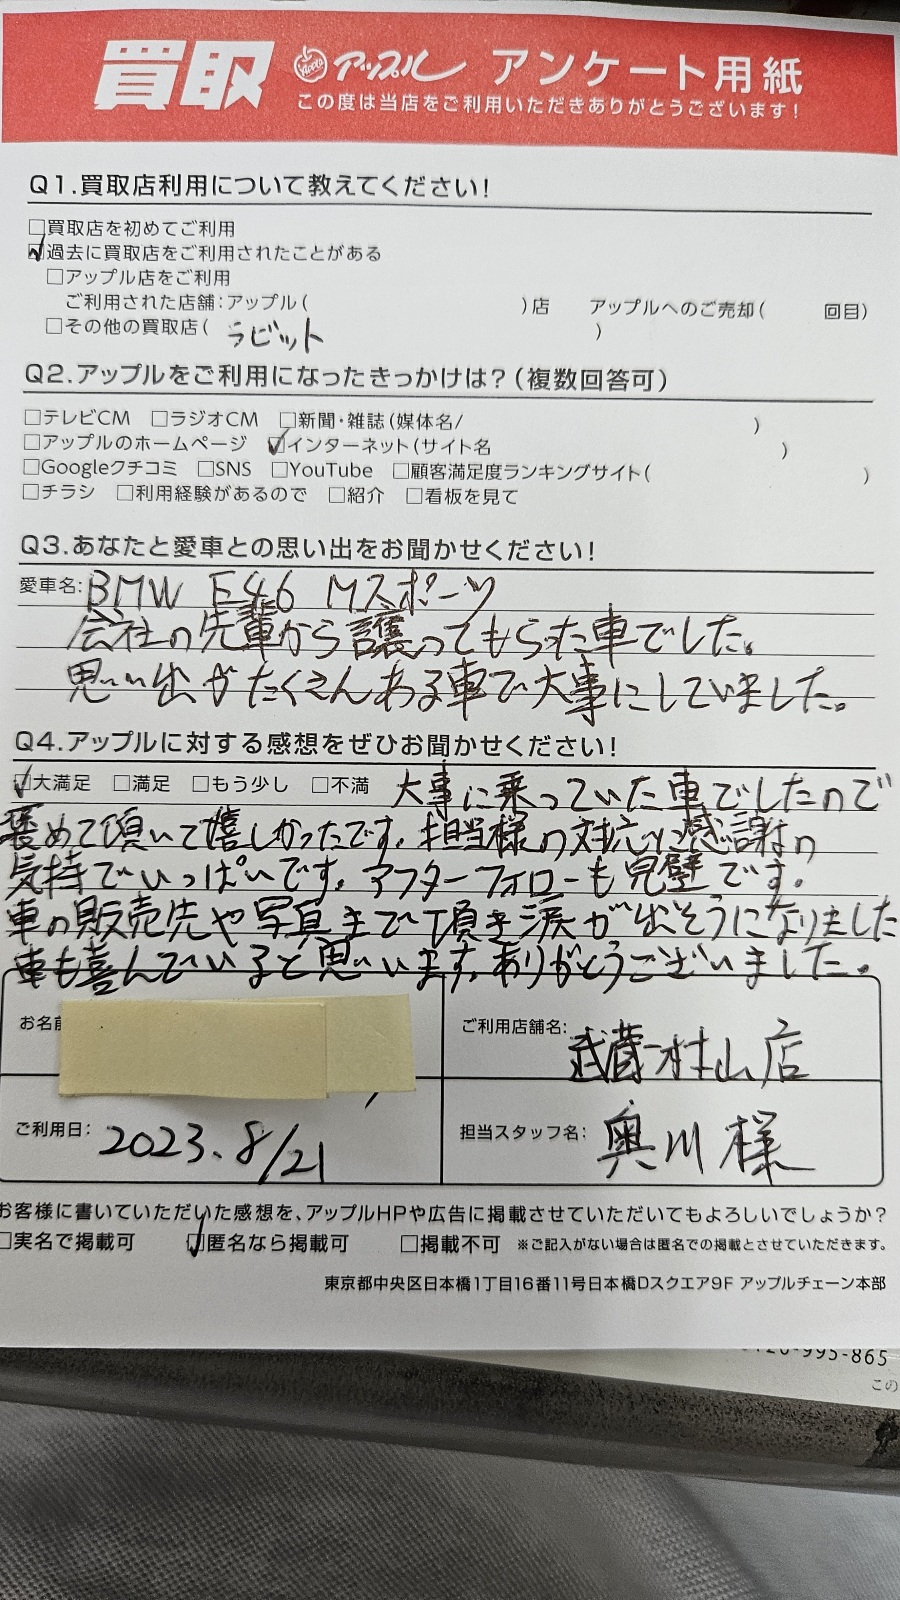 買取 アップル アンケート用紙
この度は当店をご利用いただきありがとうございます!
Q1.買取店利用について教えてください!
□買取店を初めてご利用
☑過去に買取店をご利用されたことがある
□アップル店をご利用
ご利用された店舗:アップル( )店 アップルへのご売却( 回目)
□その他の買取店( ラビット )
Q2.アップルをご利用になったきっかけは?(複数回答可)
□テレビCM □ラジオCM □新聞・雑誌(媒体名/ )
□アップルのホームページ ☑インターネット(サイト名 )
□Googleクチコミ □SNS □YouTube □顧客満足度ランキングサイト( )
□チラシ □利用経験があるので □紹介 □看板を見て
Q3.あなたと愛車との思い出をお聞かせください!
愛車名:BMW E46 Mスポーツ
会社の先輩から譲ってもらった車でした。
思い出がたくさんある車で大事にしていました。
Q4.アップルに対する感想をぜひお聞かせください!
☑大満足 □満足 □もう少し □不満 大事に乗っていた車でしたので
褒めて頂いて嬉しかったです。担当様の対応に感謝の
気持でいっぱいです。アフターフォローも完璧です。
車の販売先や写真まで頂き涙が出そうになりました
車も喜んでいると思います。ありがとうございました。
お名前 ご利用店舗名: 武蔵村山店
ご利用日: 2023.8/21 担当スタッフ名: 奥川様
お客様に書いていただいた感想を、アップルHPや広告に掲載させていただいてもよろしいでしょうか?
□実名で掲載可 ☑匿名なら掲載可 □掲載不可 ※ご記入がない場合は匿名での掲載とさせていただきます。
東京都中央区日本橋1丁目16番11号日本橋Dスクエア9F アップルチェーン本部
-995-865
この